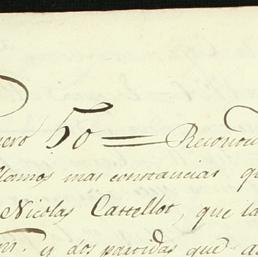 mero 50 = Reconoci
llamos mas constancias qu
Nicolas Cattellot, que la
y dos partidas que a